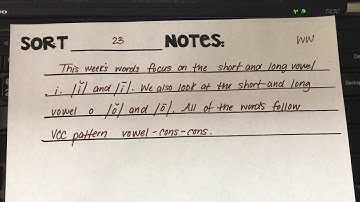 T430
SORT 23 NOTES: WW
This week's words focus on the short and long vowel
i. /ĭ/ and /ī/. We also look at the short and long
vowel o /ŏ/ and /ō/. All of the words follow
VCC pattern vowel-cons-cons.